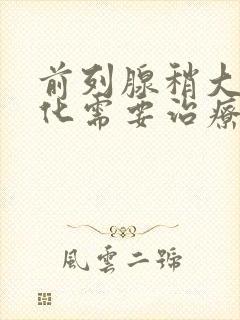 前列腺稍大
化需要治療
風雲二號